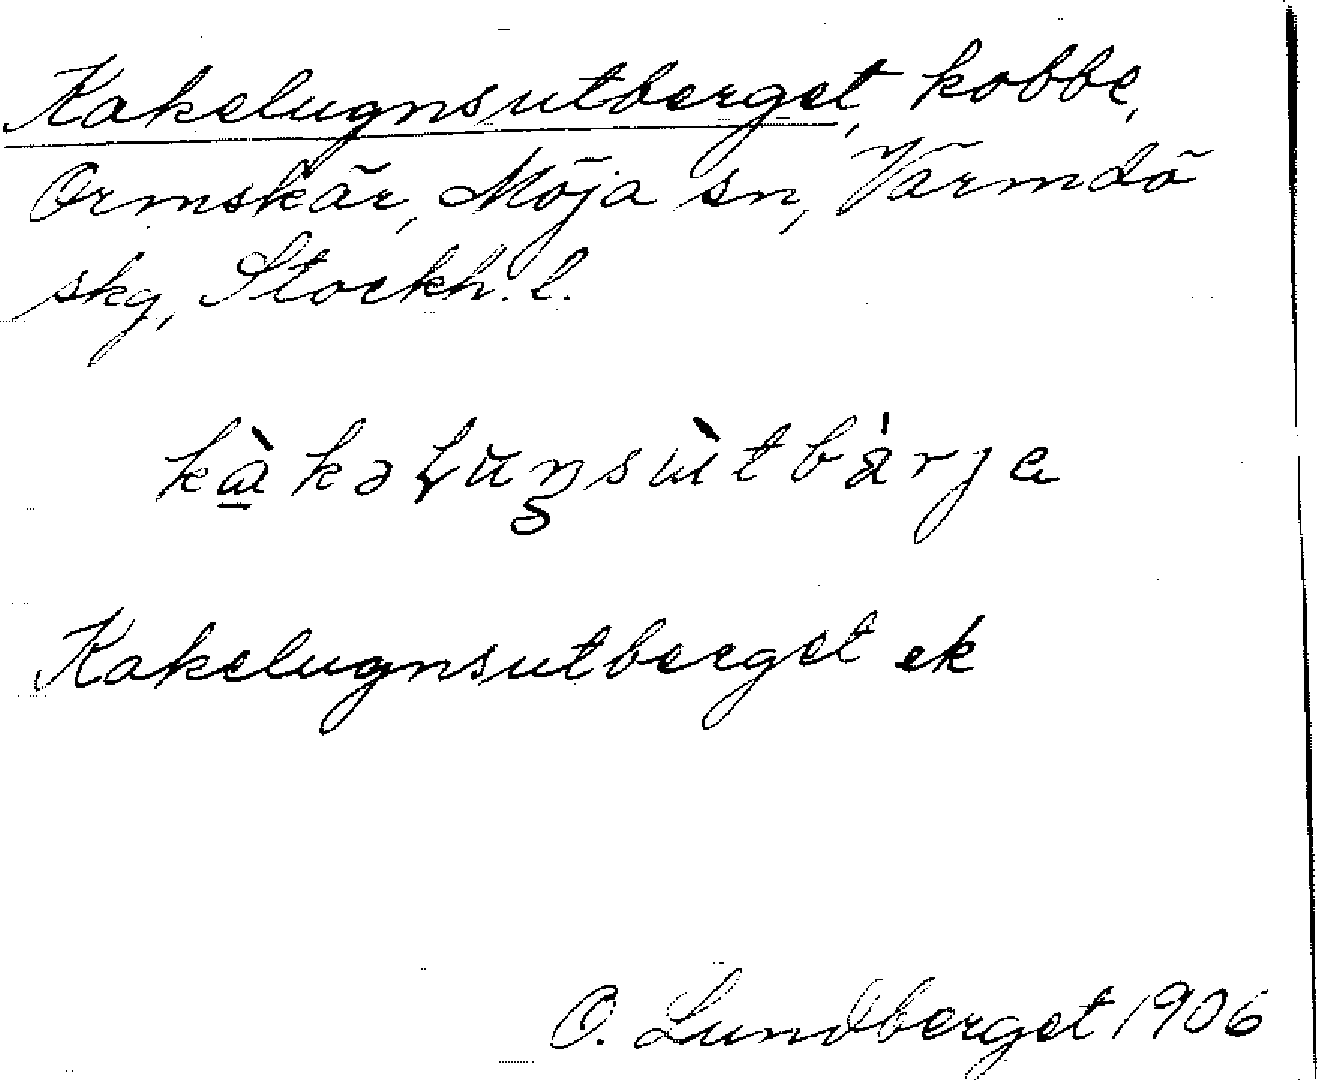 Kakelugnsutberget, kobbe,
Ormskär, Möja sn, Värmdö
skg, Stockh. l.
Kakelugnsutberget ek
O. Lundberget 1906